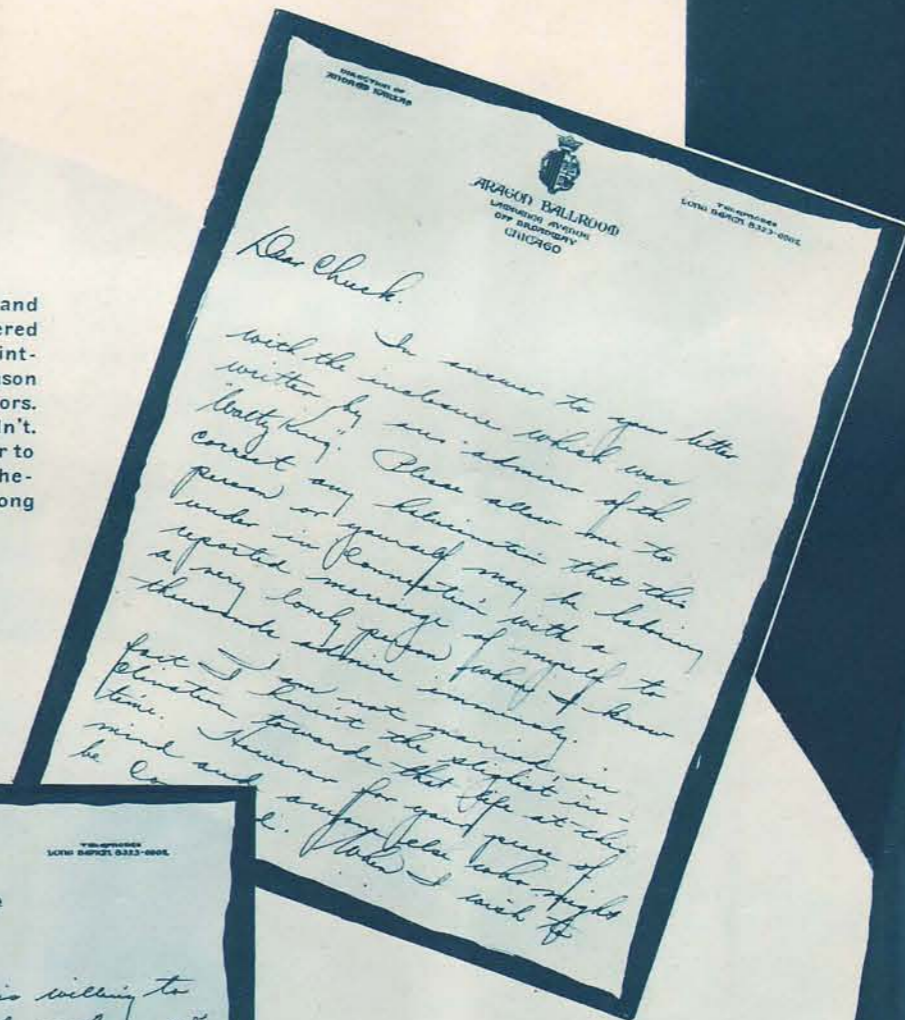 and
ered
int-
son
ors.
n't.
r to
he-
ong
DIRECTION OF
ANDREW KARZAS
ARAGON BALLROOM
LAWRENCE AVENUE
OFF BROADWAY
CHICAGO
TELEPHONES
LONG BEACH 8323-
Dear Chuck.
In answer to your letter
with the inclosure which was
written by an admirer of th
"Waltz King." Please allow me to
correct any that this
person or yourself may be laboring
under in connection with a
reported marriage of myself to
a very lovely person whom I know
thousands admire immensely.
I am not married, in
fact I havent the slightest in-
clination towards that life at this
time. However for your peace of
mind and anyone else who might
be
When I wish to
TELEPHONES
LONG BEACH 8323-
is willing to